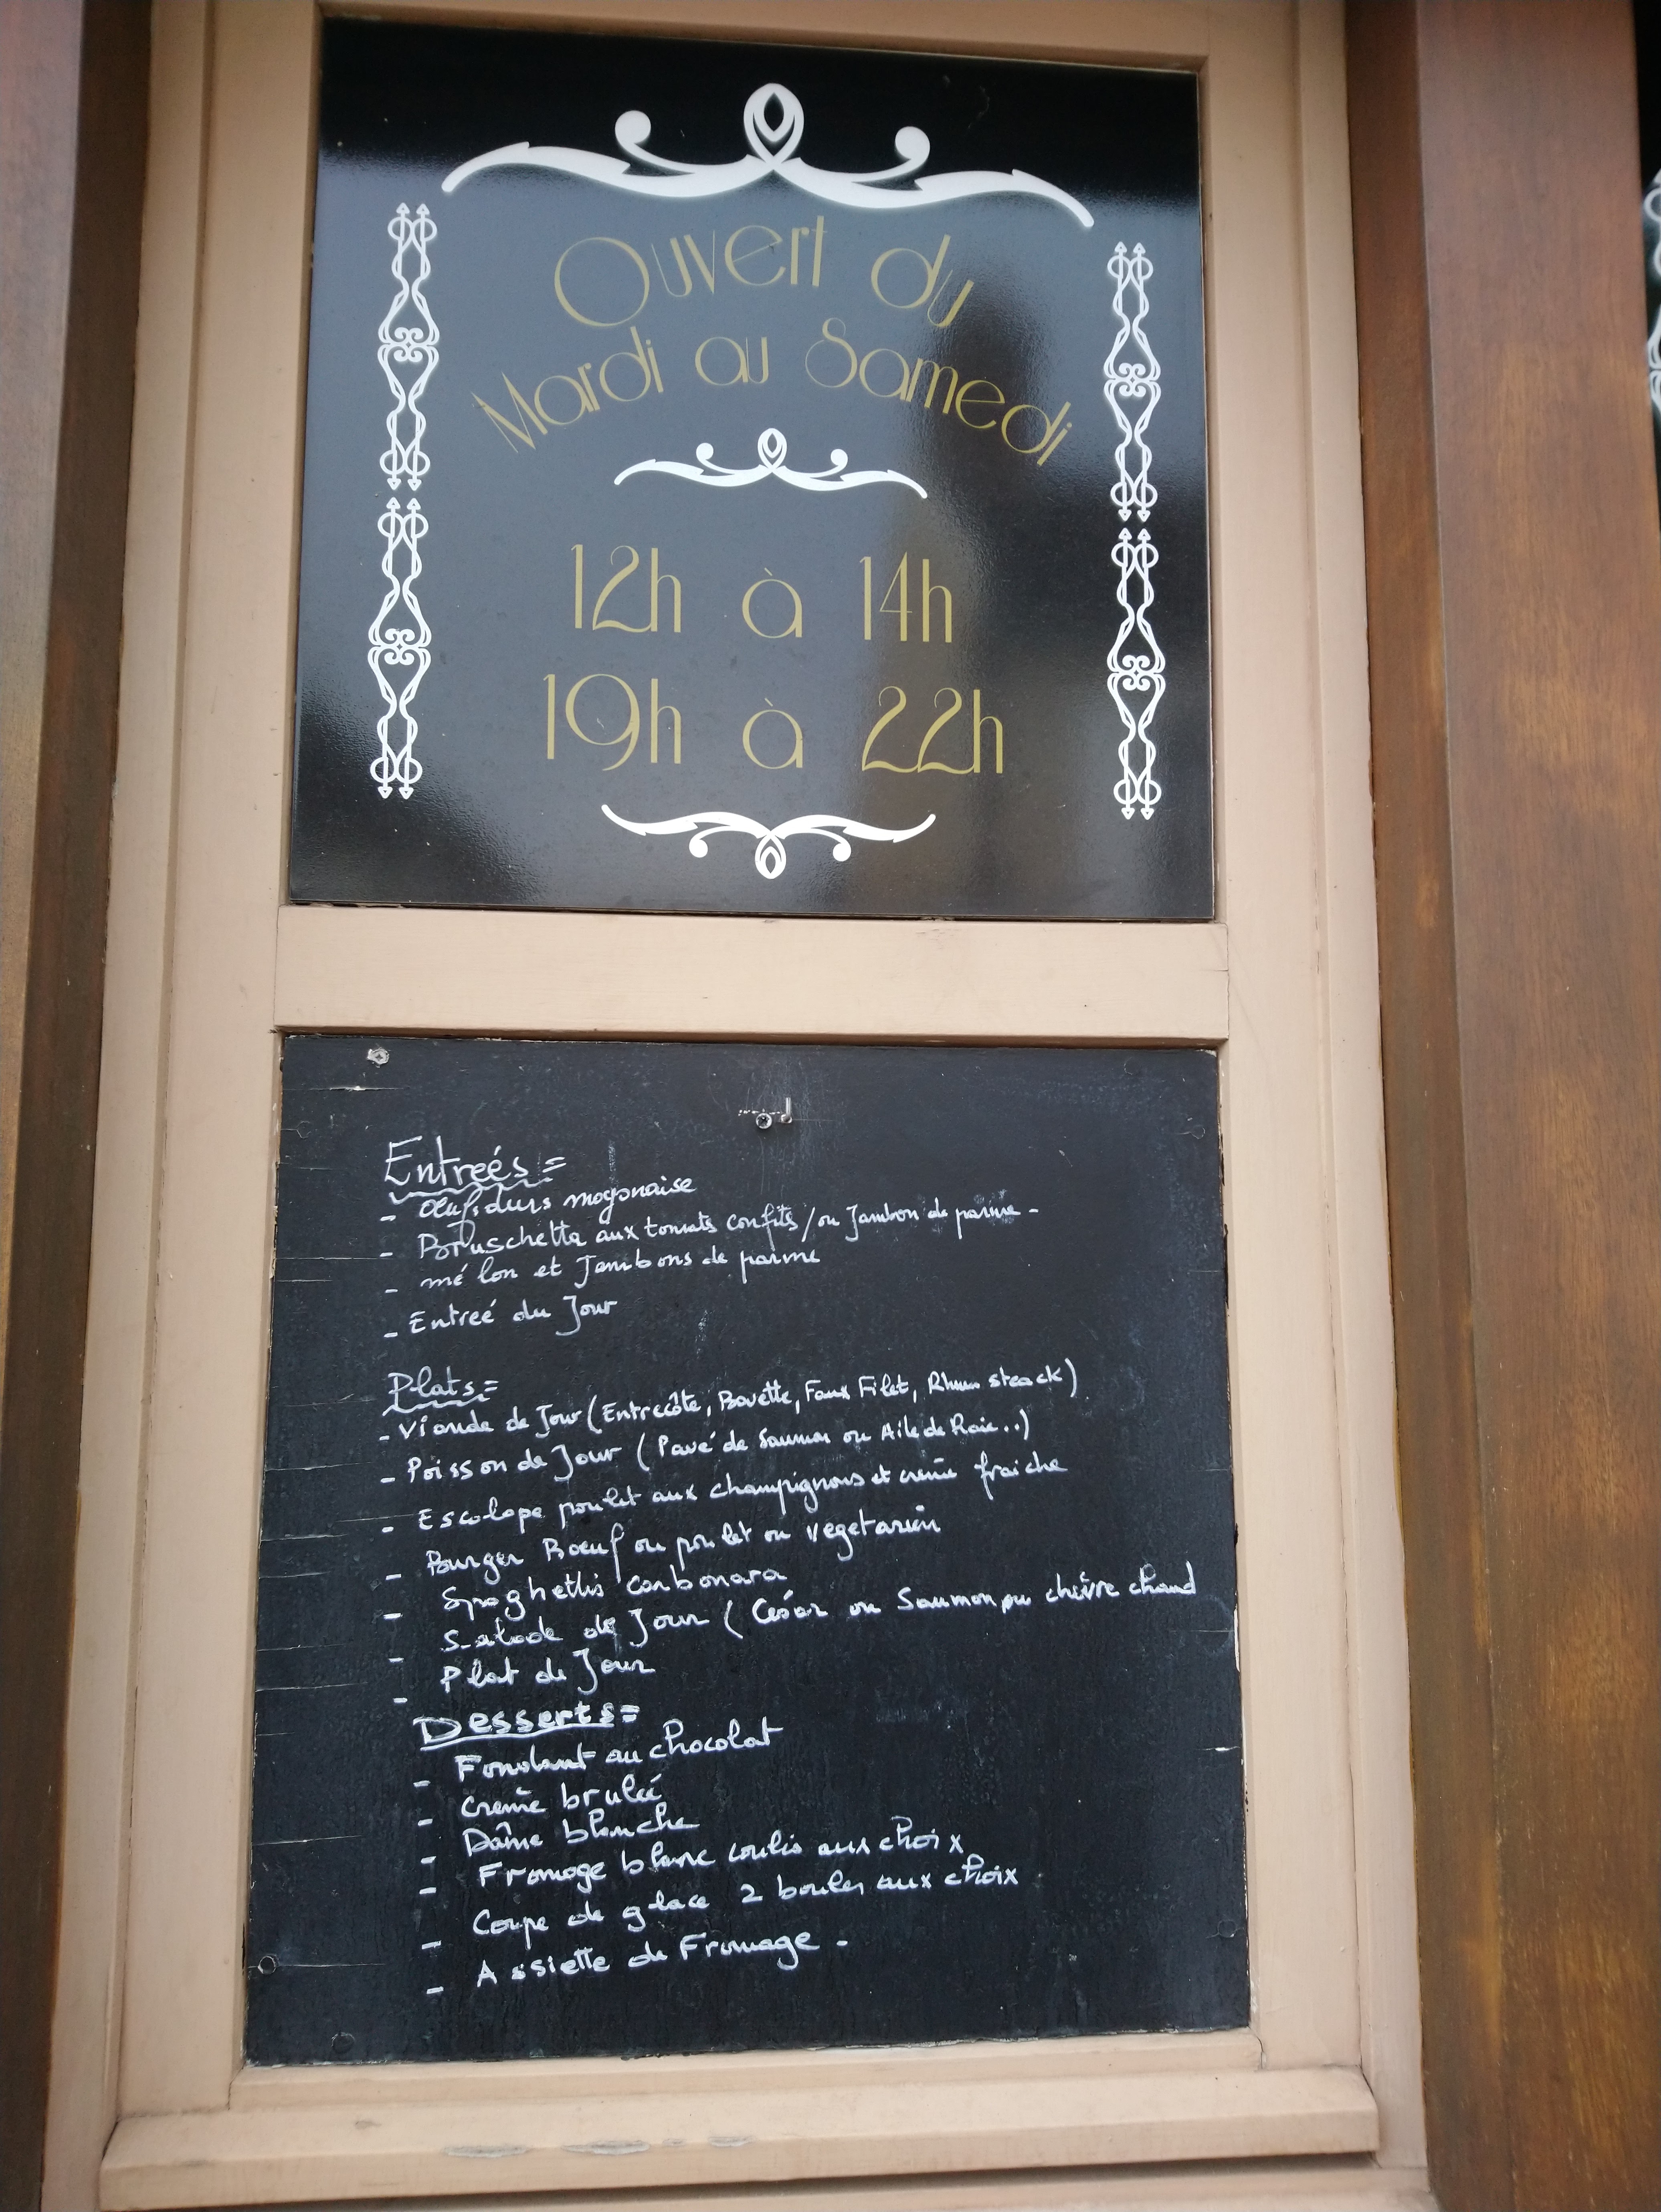 Ouvert du
Mardi au Samedi
12h à 14h
19h à 22h
Entreés =
- œufs durs mayonaise
- Bruschetta aux tomats confits / ou Jambon de parme -
- mé lon et Jambons de parme
- Entreé du Jour
Plats =
- Viande de Jour (Entrecôte, Bavette, Faux Filet, Rhum steack)
- Poisson de Jour (Pavé de Saumon ou Aile de Raie..)
- Escalope poulet aux champignons et creme fraiche
- Burger Boeuf ou poulet ou vegetarien
- Spaghettis carbonara
- Salade de Jour ( César ou Saumon ou chèvre chaud
- Plat de Jour
Desserts =
- Fondant au chocolat
- Creme brulée
- Dâme blanche
- Fromage blanc coulis aux choix
- Coupe de glace 2 boules aux choix
- Assiette de Fromage -